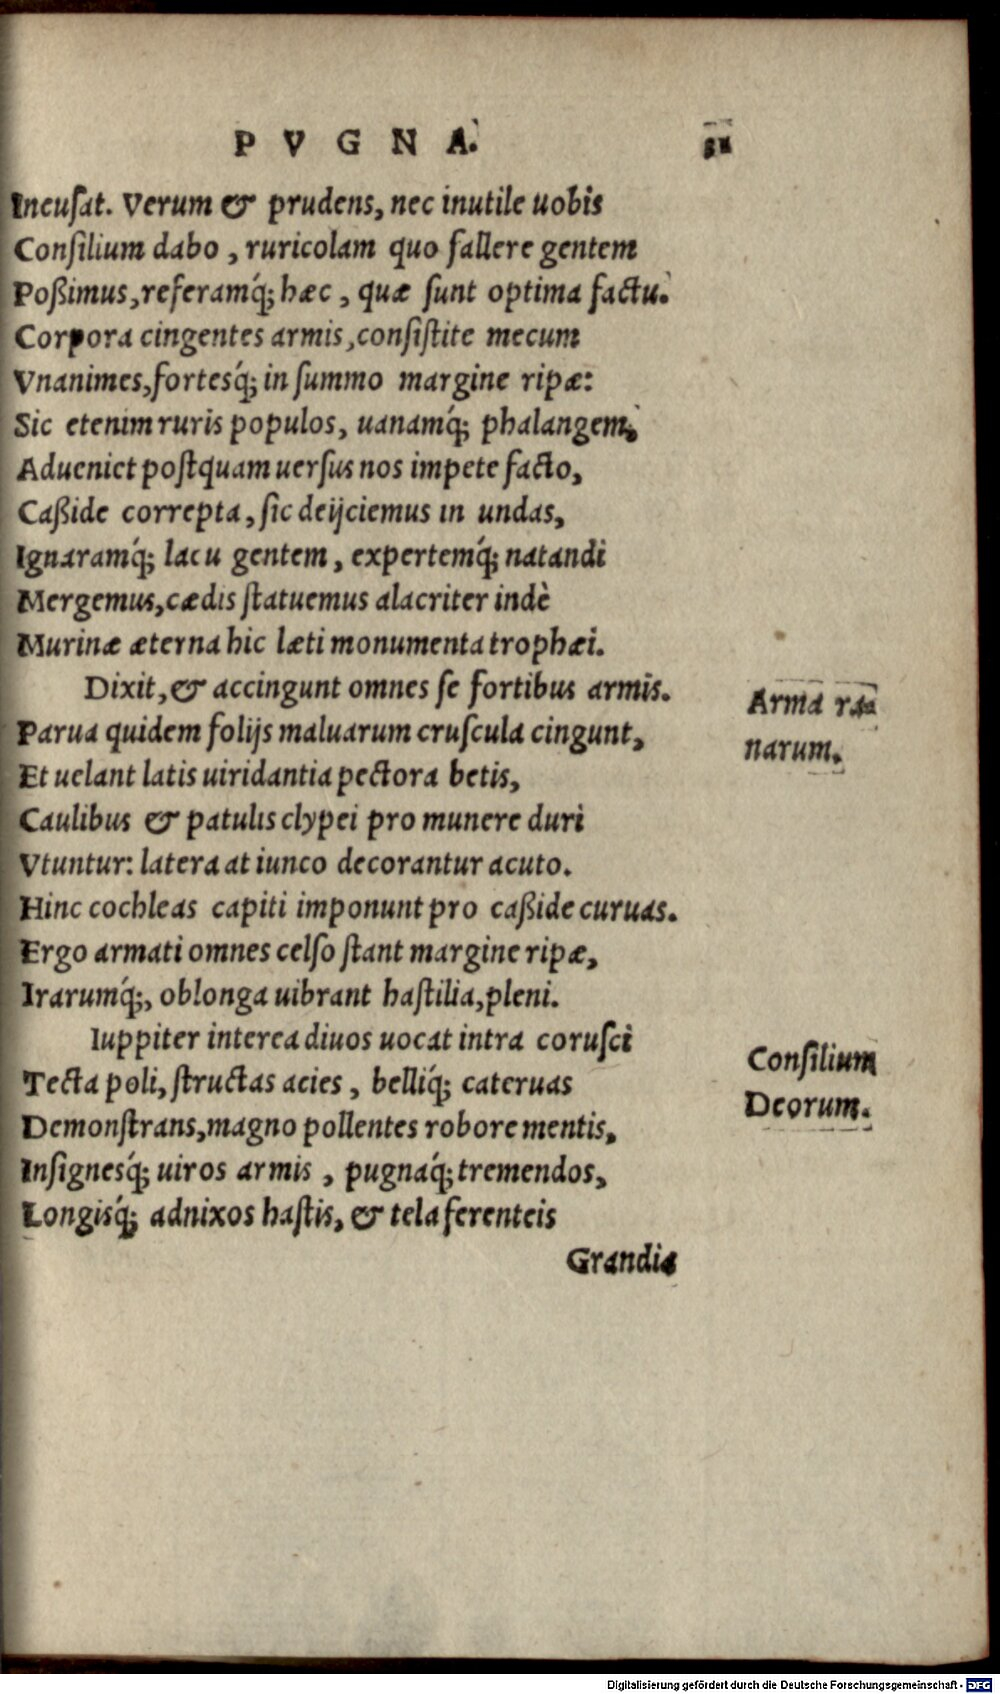 PVGNA.
Incuſat. Verum & prudens, nec inutile uobis
Conſilium dabo, ruricolam quo fallere gentem
Poßimus, referamq́; hæc, quæ ſunt optima factu.
Corpora cingentes armis, conſiſtite mecum
Vnanimes, fortesq́; in ſummo margine ripæ:
Sic etenim ruris populos, uanamq́; phalangem,
Adueniet poſtquam uerſus nos impete facto,
Caßide correpta, ſic deijciemus in undas,
Ignaramq́; lacu gentem, expertemq́; natandi
Mergemus, cædis ſtatuemus alacriter indè
Murinæ æterna hic læti monumenta trophæi.
Dixit, & accingunt omnes ſe fortibus armis.
Arma ra-
narum.
Parua quidem folijs maluarum cruſcula cingunt,
Et uelant latis uiridantia pectora betis,
Caulibus & patulis clypei pro munere duri
Vtuntur: latera at iunco decorantur acuto.
Hinc cochleas capiti imponunt pro caßide curuas.
Ergo armati omnes celſo ſtant margine ripæ,
Irarumq́;, oblonga uibrant haſtilia, pleni.
Iuppiter interea diuos uocat intra coruſci
Conſilium
Deorum.
Tecta poli, ſtructas acies, belliq́; cateruas
Demonſtrans, magno pollentes robore mentis,
Inſignesq́; uiros armis, pugnaq́; tremendos,
Longisq́; adnixos haſtis, & tela ferenteis
Grandia
Digitalisierung gefördert durch die Deutsche Forschungsgemeinschaft - DFG